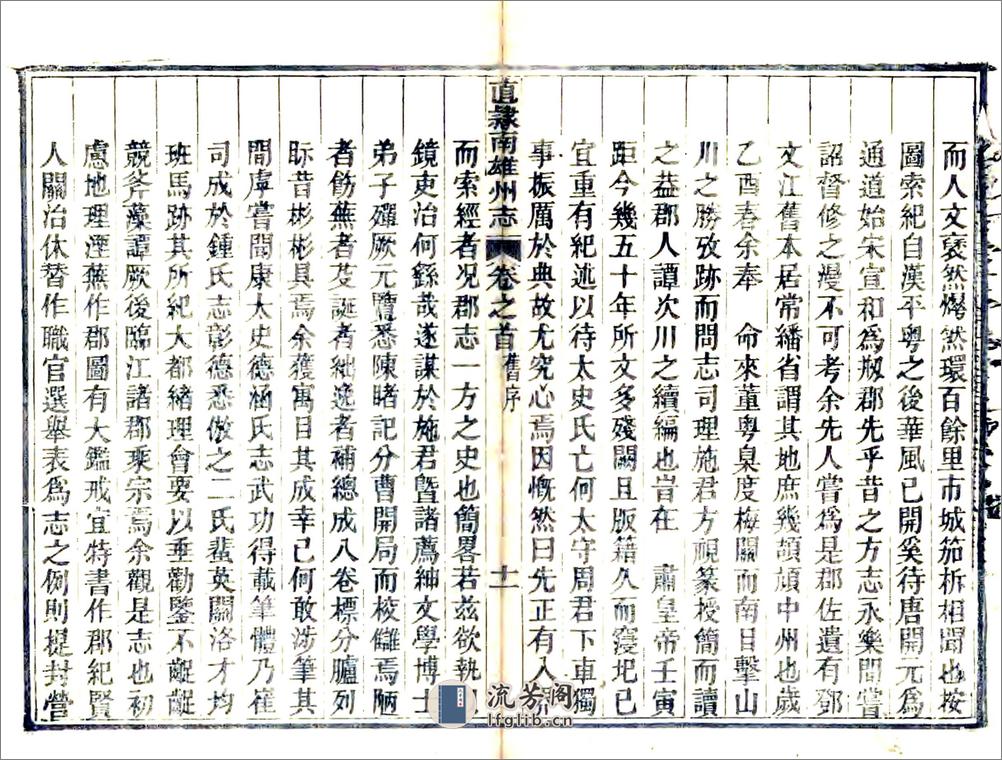 而人文褎然爗然環百餘里市城笳柝相聞也按
圖索紀自漢平粵之後華風已開奚待唐開元爲
通道始宋宣和爲剏郡先乎昔之方志永樂間嘗
詔督修之漫不可考余先人嘗爲是郡佐遺有鄧
文江舊本居常繙省謂其地庶幾頡頏中州也歲
乙酉春余奉 命來董粵臬度梅關而南目擊山
川之勝攷跡而問志司理施君方視篆授簡而讀
之葢郡人譚次川之續編也旹在 肅皇帝壬寅
距今幾五十年所文多殘闕且版籍久而寖圮已
宜重有紀述以待太史氏亡何太守周君下車獨
事振厲於典故尤究心焉因慨然曰先正有入
直隸南雄州志 卷之首 舊序 十一
而索經者况郡志一方之史也簡畧若兹欲執
鏡吏治何繇哉遂謀於施君暨諸薦紳文學博士
弟子殫厥元覽悉陳睹記分曹開局而校讎焉陋
者飭蕪者芟誕者絀逸者補總成八卷標分臚列
眎昔彬彬具焉余獲寓目其成幸已何敢涉筆其
間虖嘗聞康太史德涵氏志武功得載筆體乃崔
司成於鍾氏志彰德悉倣之二氏蜚英關洛才均
班馬跡其所紀大都緒理會要以垂勸鑒不齪齪
競斧藻譚厥後臨江諸郡乘宗焉余觀是志也初
慮地理湮蕪作郡圖有大鑑戒宜特書作郡紀賢
人關治休替作職官選舉表爲志之例則提封營
流芳阁
lfglib.cn